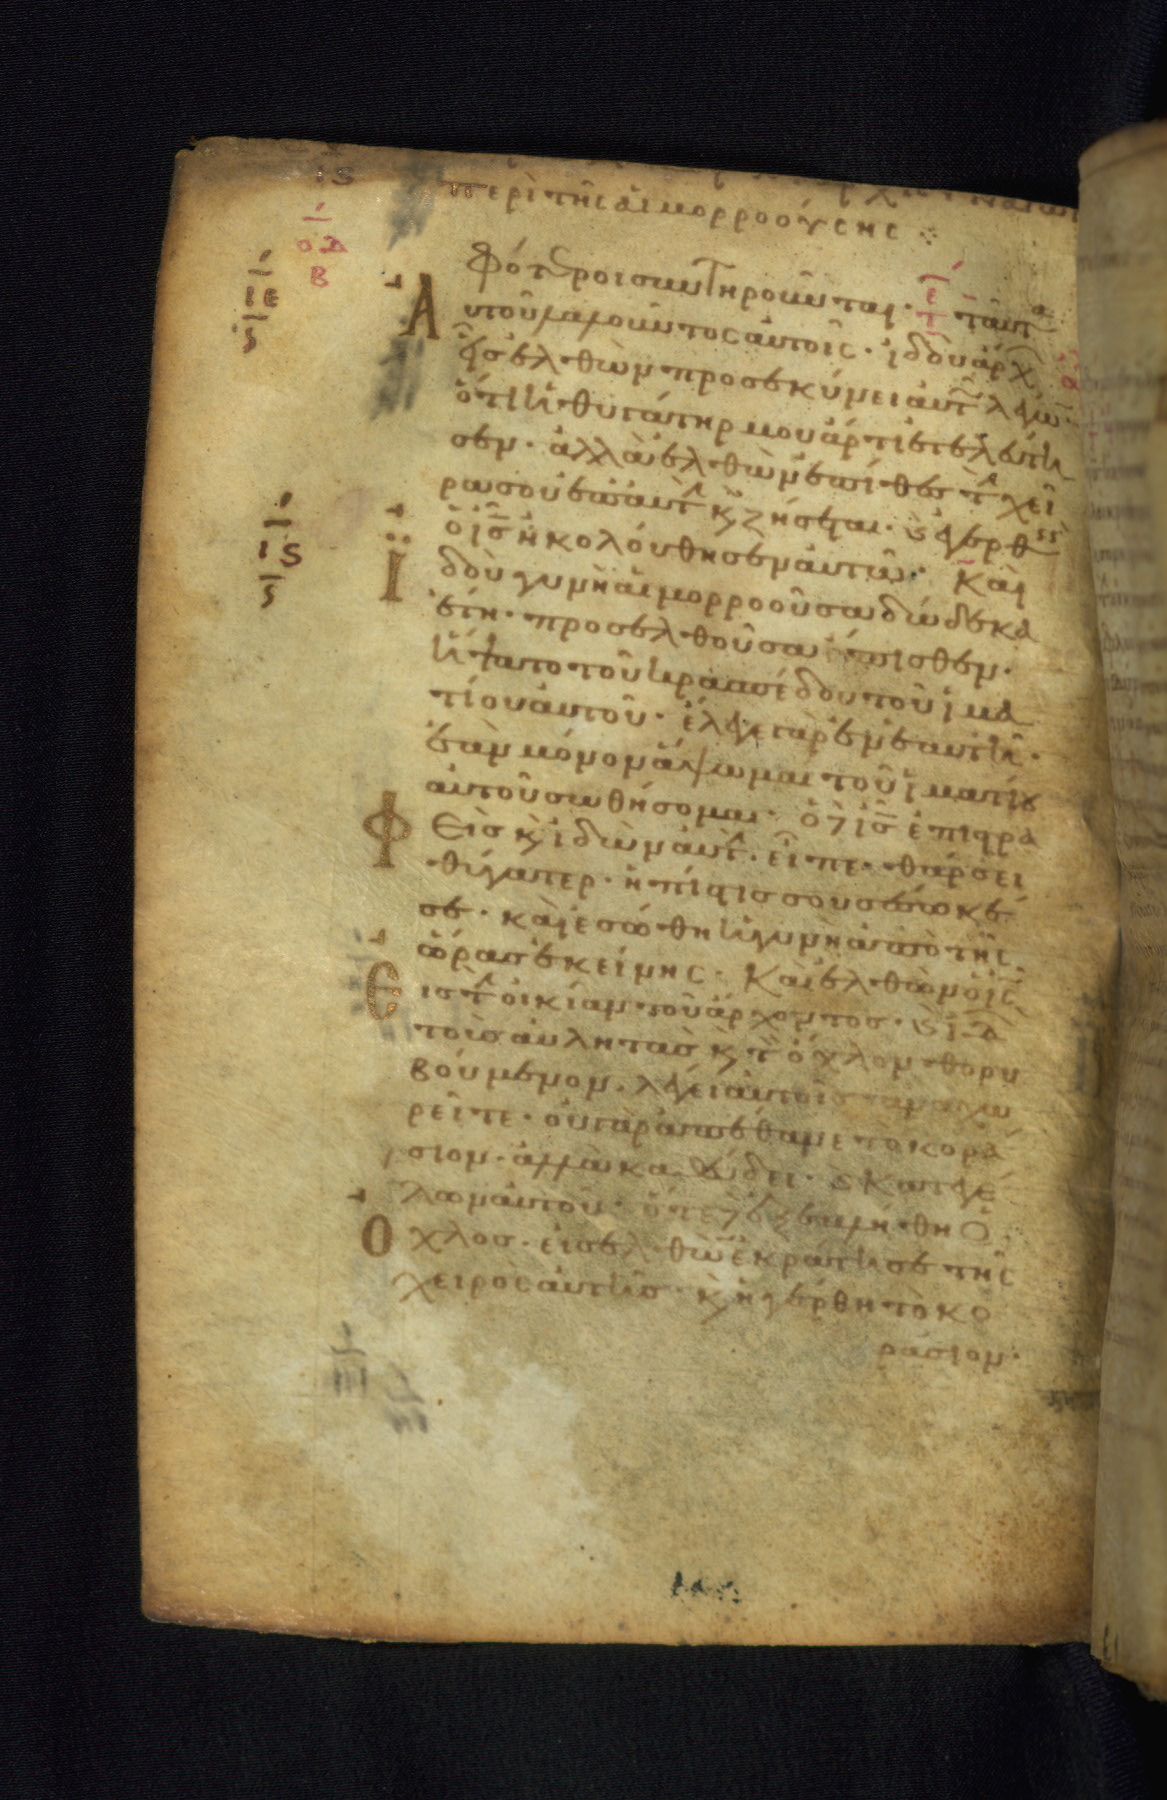 ις περὶ τῆς αἱμορροούσης
οδ
β
ιε
ς
φότεροι συντηροῦνται· ταῦτα
Αυτοῦ λαλοῦντος αὐτοῖς· ἰδοὺ ἄρχ
εἰσελθὼν προσεκύνει αὐτ λέγων
ὅτι ἡ θυγάτηρ μου ἄρτι ἐτελεύτη
σεν· ἀλλὰ ἐλθὼν ἐπίθες τ χεῖ
ρα σου ἐπ αὐτ κ ζήσεται· κ ἐγερθεὶς
ις
ς
ὁ ις ἠκολούθησεν αὐτῶ· Καὶ ἰ
δοὺ γυνὴ αἱμορροοῦσα δώδεκα
ἔτη· προσελθοῦσα ὄπισθεν·
ἥψατο τοῦ κρασπέδου τοῦ ἱμα
τίου αὐτοῦ· ἔλεγε γὰρ ἐν ἑαυτῆ·
ἐὰν μόνον ἅψωμαι τοῦ ἱματίου
αὐτοῦ σωθήσομαι· ὁ δὲ ις ἐπιστρα
Φεὶς κ ἰδὼν αὐτ· εἶπε· θάρσει
θύγατερ· ἡ πίστις σου σέσωκέ
σε· καὶ ἐσώθη ἡ γυνὴ ἀπὸ τῆς
ὥρας ἐκείνης· Καὶ ἐλθὼν ὁ ις
Εις τ οἰκίαν τοῦ ἄρχοντος· κ ἰδ
τοὺς αὐλητὰς κ τ ὄχλον θορυ
βούμενον· λέγει αὐτοῖς ἀναχω
ρεῖτε· οὐ γὰρ ἀπέθανε τὸ κορά
σιον· ἀλλὰ καθεύδει· κ κατεγέ
λων αὐτοῦ· ὅτε δὲ ἐξεβλήθη ὁ
Οχλος· εἰσελθὼν ἐκράτησε τῆς
χειρὸς αὐτῆς· κ ἠγέρθη τὸ κο
ράσιον·